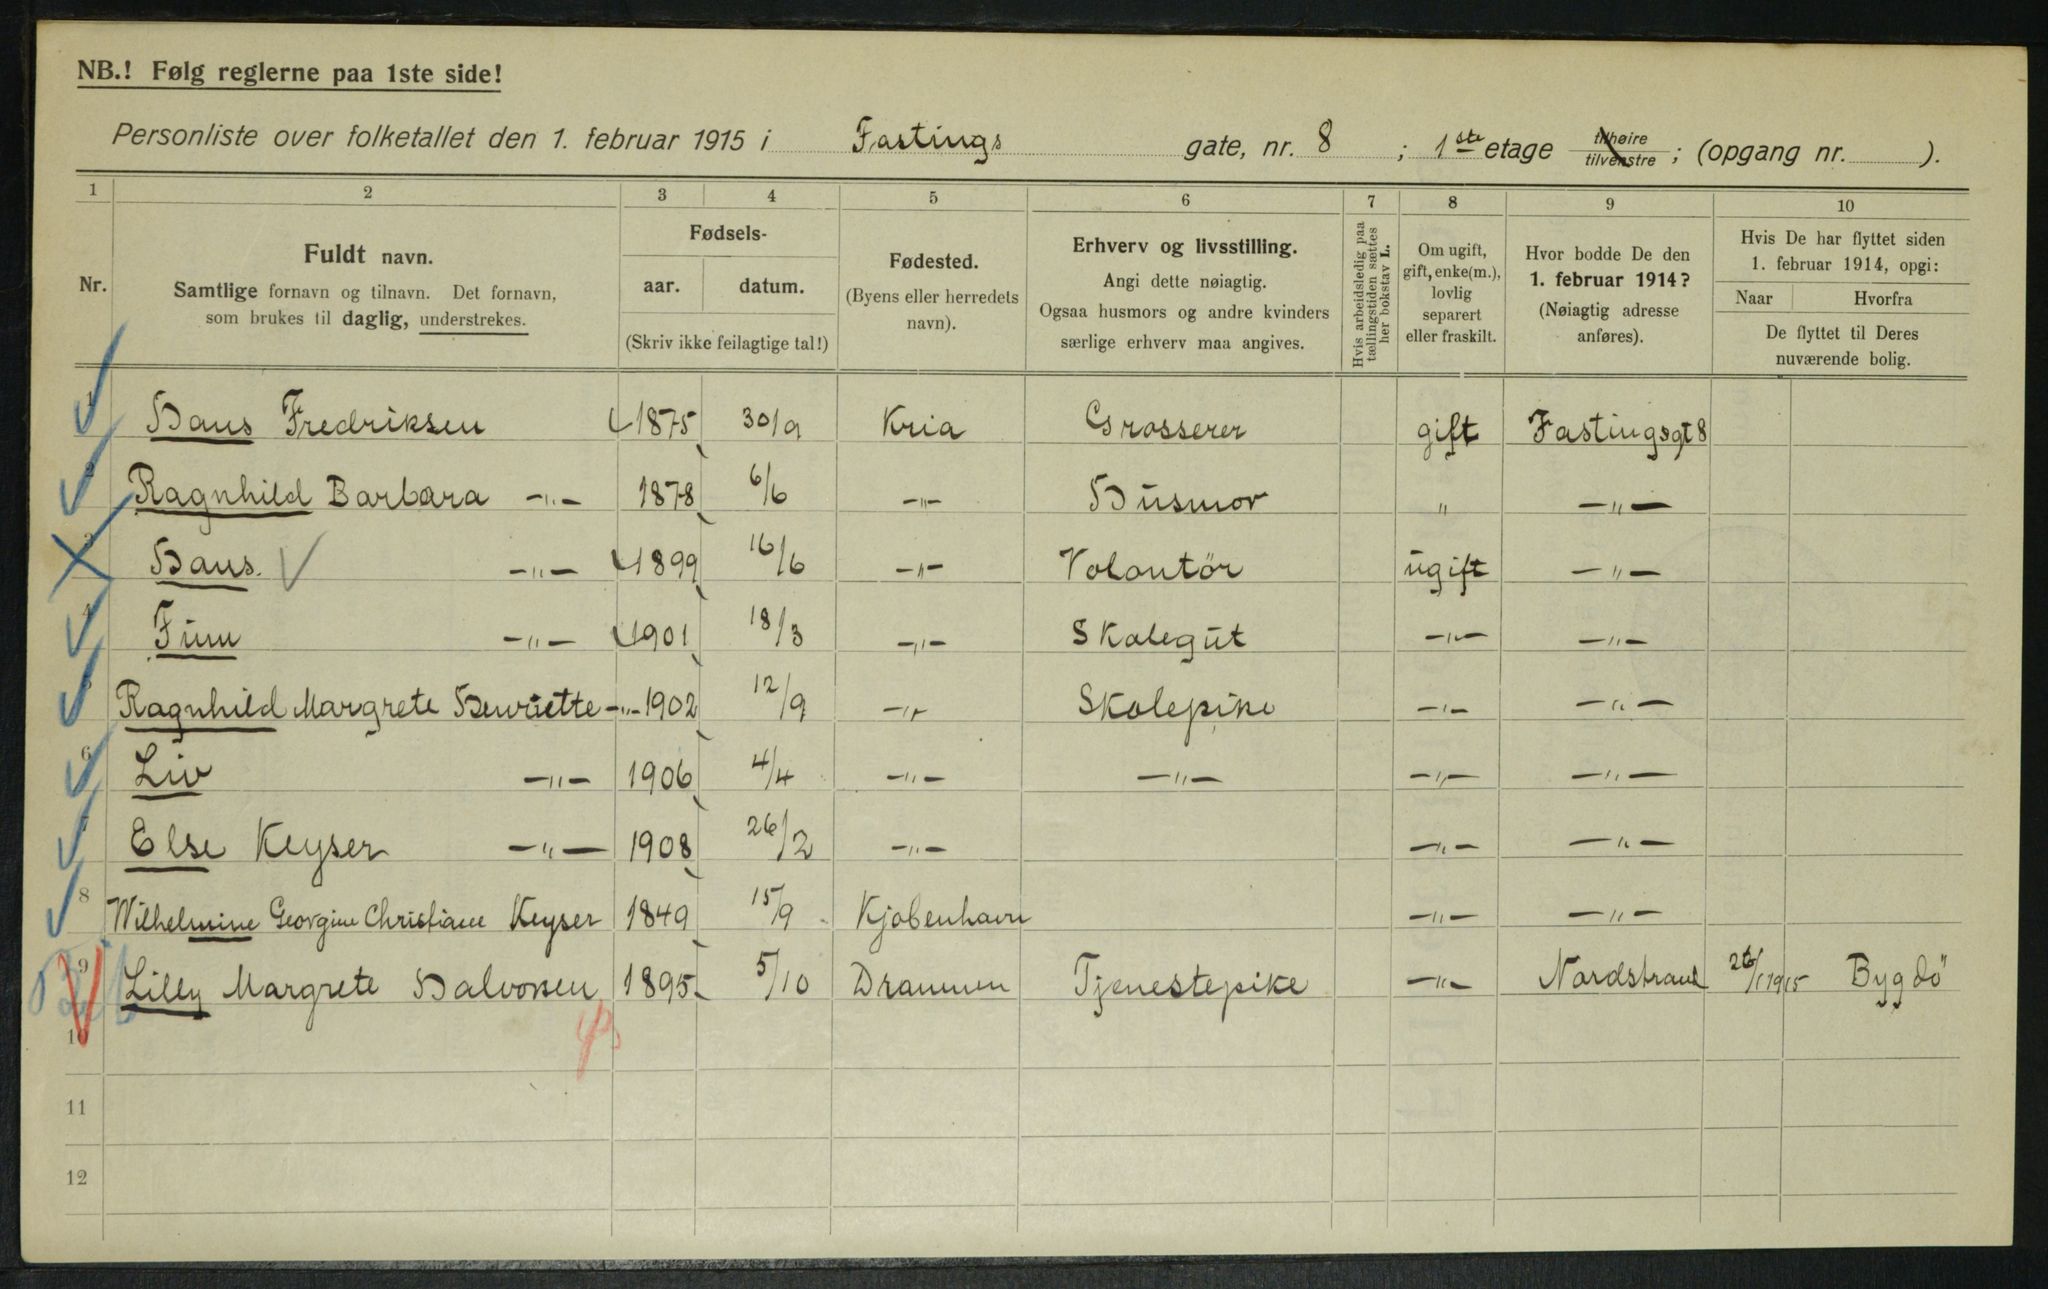 NB.! Følg reglerne paa 1ste side!
Personliste over folketallet den 1. februar 1915 i Fastings gate, nr. 8 ; 1ste etage tilhøire tilvenstre ; (opgang nr. ).
1 2 3 4 5 6 7 8 9 10
Nr.
Fuldt navn.
Samtlige fornavn og tilnavn. Det fornavn,
som brukes til daglig, understrekes.
Fødsels-
aar. datum.
(Skriv ikke feilagtige tal!)
Fødested.
(Byens eller herredets
navn).
Erhverv og livsstilling.
Angi dette nøiagtig.
Ogsaa husmors og andre kvinders
særlige erhverv maa angives.
Hvis arbeidsledig paa
tællingstiden sættes
her bokstav L.
Om ugift,
gift, enke(m.),
lovlig
separert
eller fraskilt.
Hvor bodde De den
1. februar 1914?
(Nøiagtig adresse
anføres).
Hvis De har flyttet siden
1. februar 1914, opgi:
Naar Hvorfra
De flyttet til Deres
nuværende bolig.
1 Hans Fredriksen 1875 30/9 Kria Grosserer gift Fastingsgt 8
2 Ragnhild Barbara —"— 1878 6/6 —"— Husmor " —"—
3 Hans. —"— 1899 16/6 —"— Volontör ugift —"—
4 Finn —"— 1901 18/3 —"— Skolegut —"— —"—
5 Ragnhild Margrete Henriette —"— 1902 12/9 —"— Skolepike —"— —"—
6 Liv —"— 1906 4/4 —"— —"— —"— —"—
7 Else Keyser —"— 1908 26/2 —"— —"— —"—
8 Wilhelmine Georgine Christiane Keyser 1849 15/9 Kjøbenhavn —"— —"—
9 Lilly Margrete Halvorsen 1895 5/10 Drammen Tjenestepike —"— Nordstrand 26/1 1915 Bygdö
10
11
12